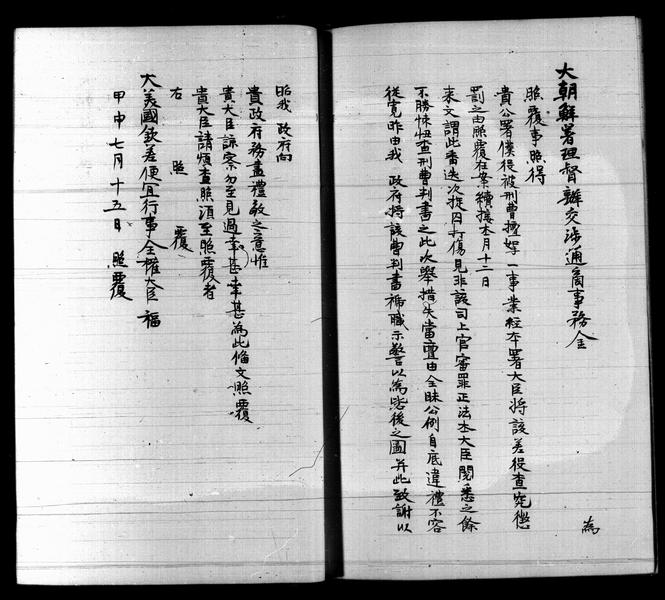 大朝鮮署理督辦交涉通商事務金　　為
照覆事照得
貴公署僕從被刑曹擅拏一事業經本署大臣將該差役查究懲
罰之由照覆在案續接本月十二日
來文謂此番迭次捉囚打傷見非該司上官審罪正法本大臣閱悉之餘
不勝悚忸查刑曹判書之此次舉措失當亶由全昧公例自底違禮不容
從寬昨由我　政府將該曹判書褫職示警以為毖後之圖并此致謝以
昭我　政府向
貴政府務盡禮敬之意惟
貴大臣諒察勿至見過幸甚幸甚為此備文照覆
貴大臣請煩查照須至照覆者
右　照　覆
大美國欽差便宜行事全權大臣　福
甲申七月十五日　照覆